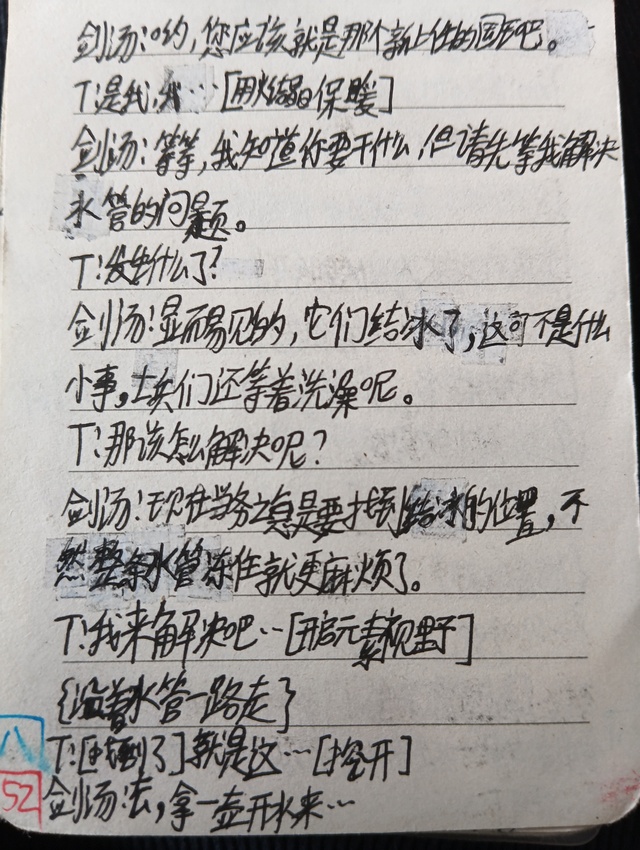 剑汤:哟,您应该就是那个新上任的国王吧。
T:是我,我…[用火焰晶保暖]
剑汤:等等,我知道你要干什么,但请先等我解决
水管的问题。
T:发生什么了?
剑汤:显而易见的,它们结冰了,这可不是什么
小事。士兵们还等着洗澡呢。
T:那该怎么解决呢?
剑汤:现在当务之急是要找到结冰的位置,不
然整条水管冻住就更麻烦了。
T:我来解决吧…[开启元素视野]
{沿着水管一路走}
八
T:[找到了]就是这…[挖开]
52
剑汤:去,拿一壶开水来…